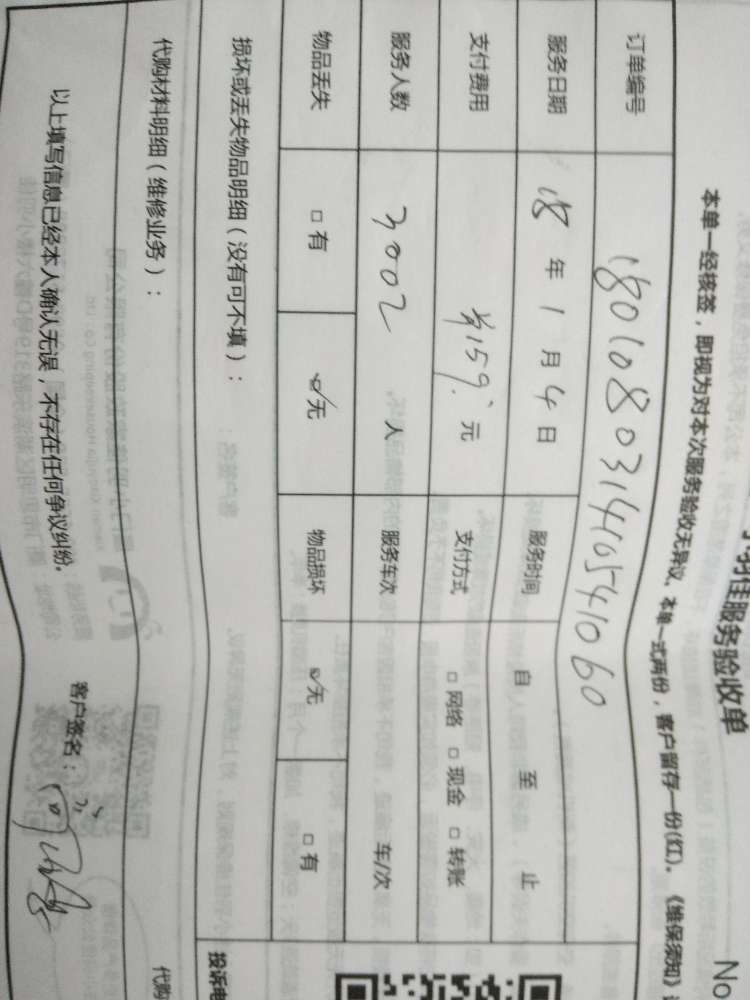 羽佳服务验收单
No
本单一经核签，即视为对本次服务验收无异议、本单一式两份，客户留存一份(红)。《维保须知》
订单编号 18010803141054106 0
服务日期 18 年 1 月 4 日 服务时间 自 至 止
支付费用 ¥159. 元 支付方式 □ 网络 □ 现金 □ 转账
服务人数 3002 人 服务车次 车/次
物品丢失 □ 有 ☑ 无 物品损坏 ☑ 无 □ 有
损坏或丢失物品明细（没有可不填）：
投诉电
代购材料明细（维修业务）：
代购
以上填写信息已经本人确认无误，不存在任何争议纠纷。 客户签名：